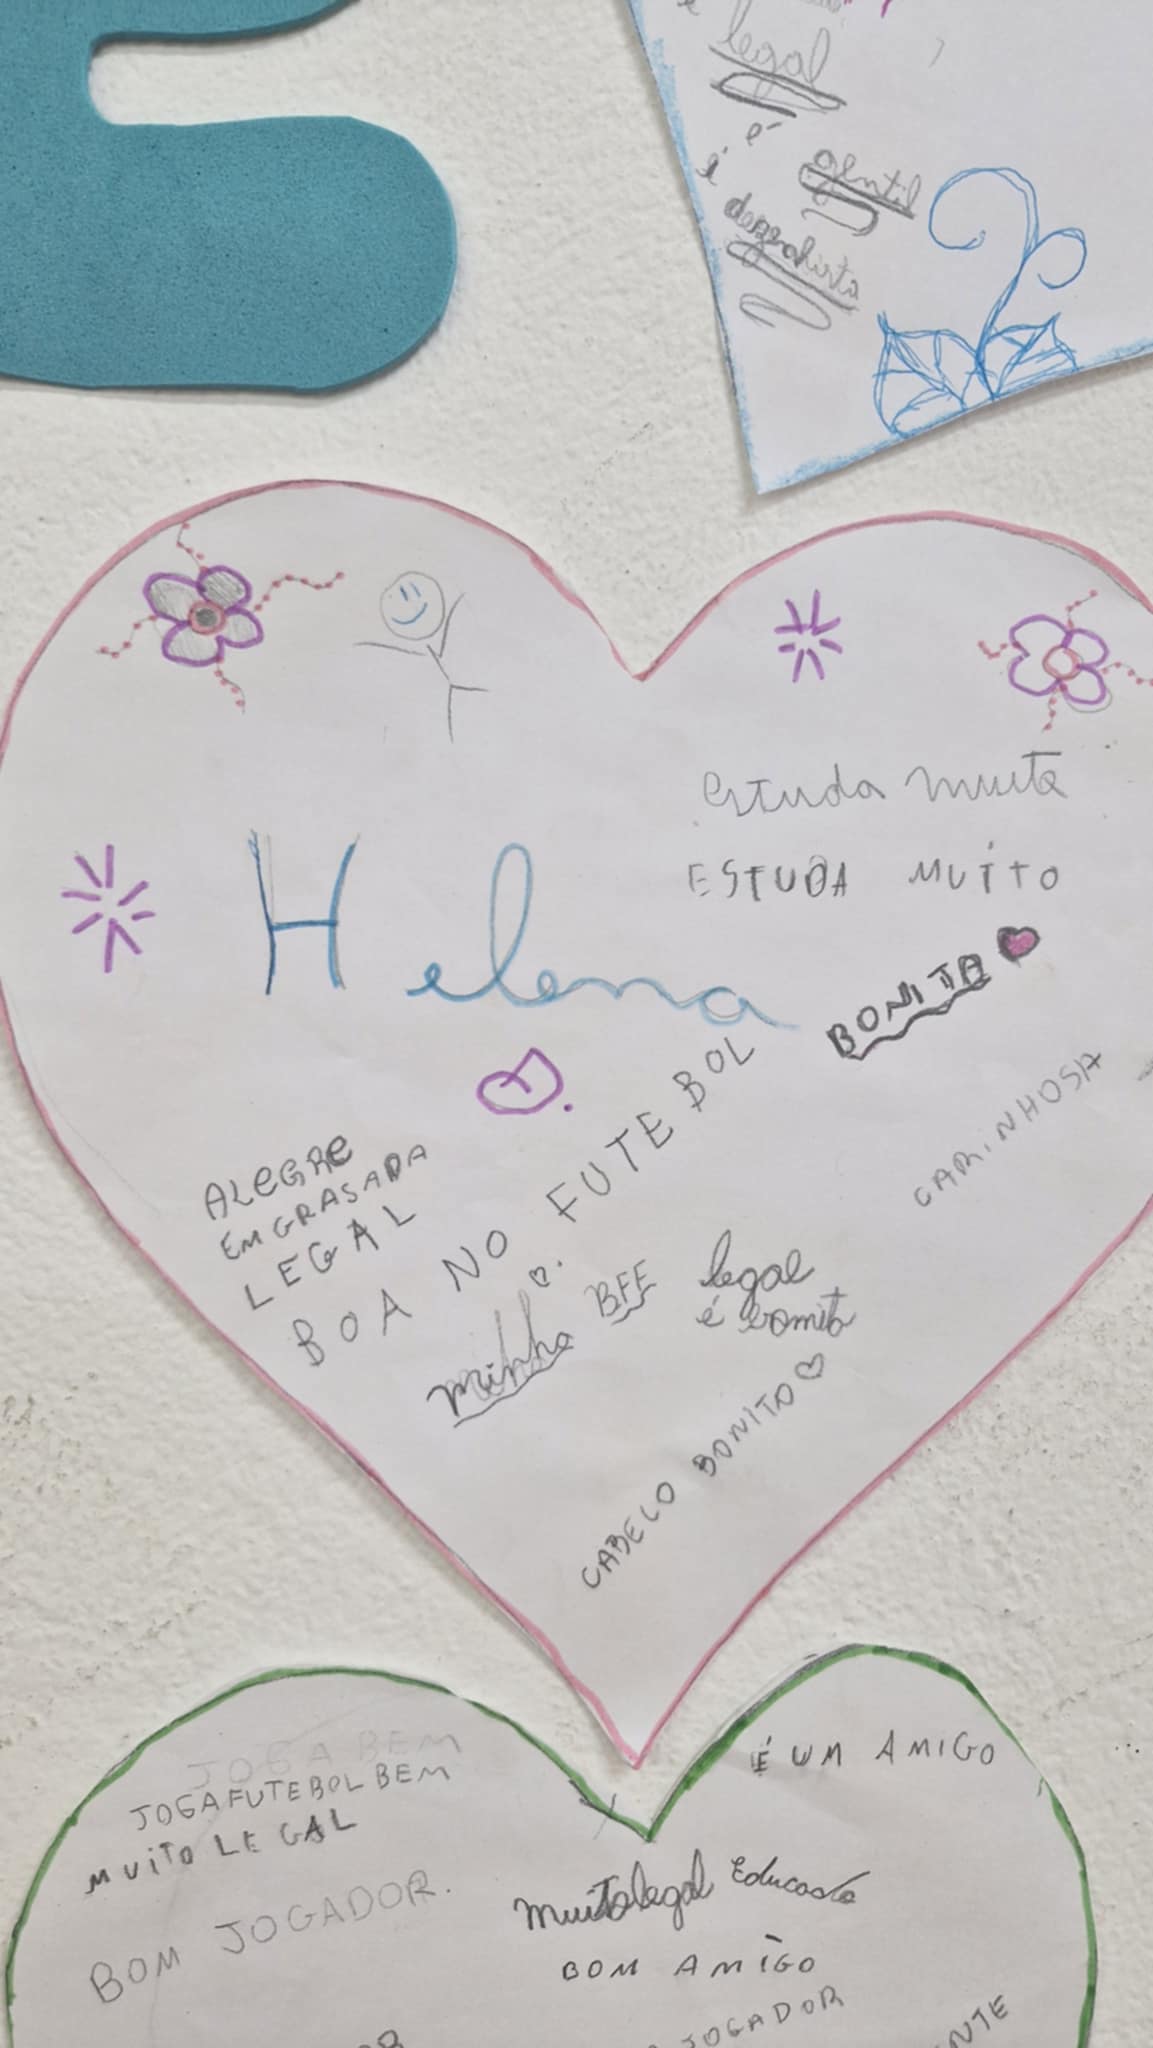 é legal
é gentil
é desenhista
estuda muito
ESTUDA MUÍTO
Helena
BONITA
CARINHOSA
ALEGRE
EMGRASADA
LEGAL
BOA NO FUTEBOL
minha BFF
legal
é bomita
CABELO BONITO
JOGA BEM
JOGAFUTEBOL BEM
MUITO LEGAL
BOM JOGADOR.
É UM AMIGO
Muito legal Educado
BOM AMIGO
JOGADOR